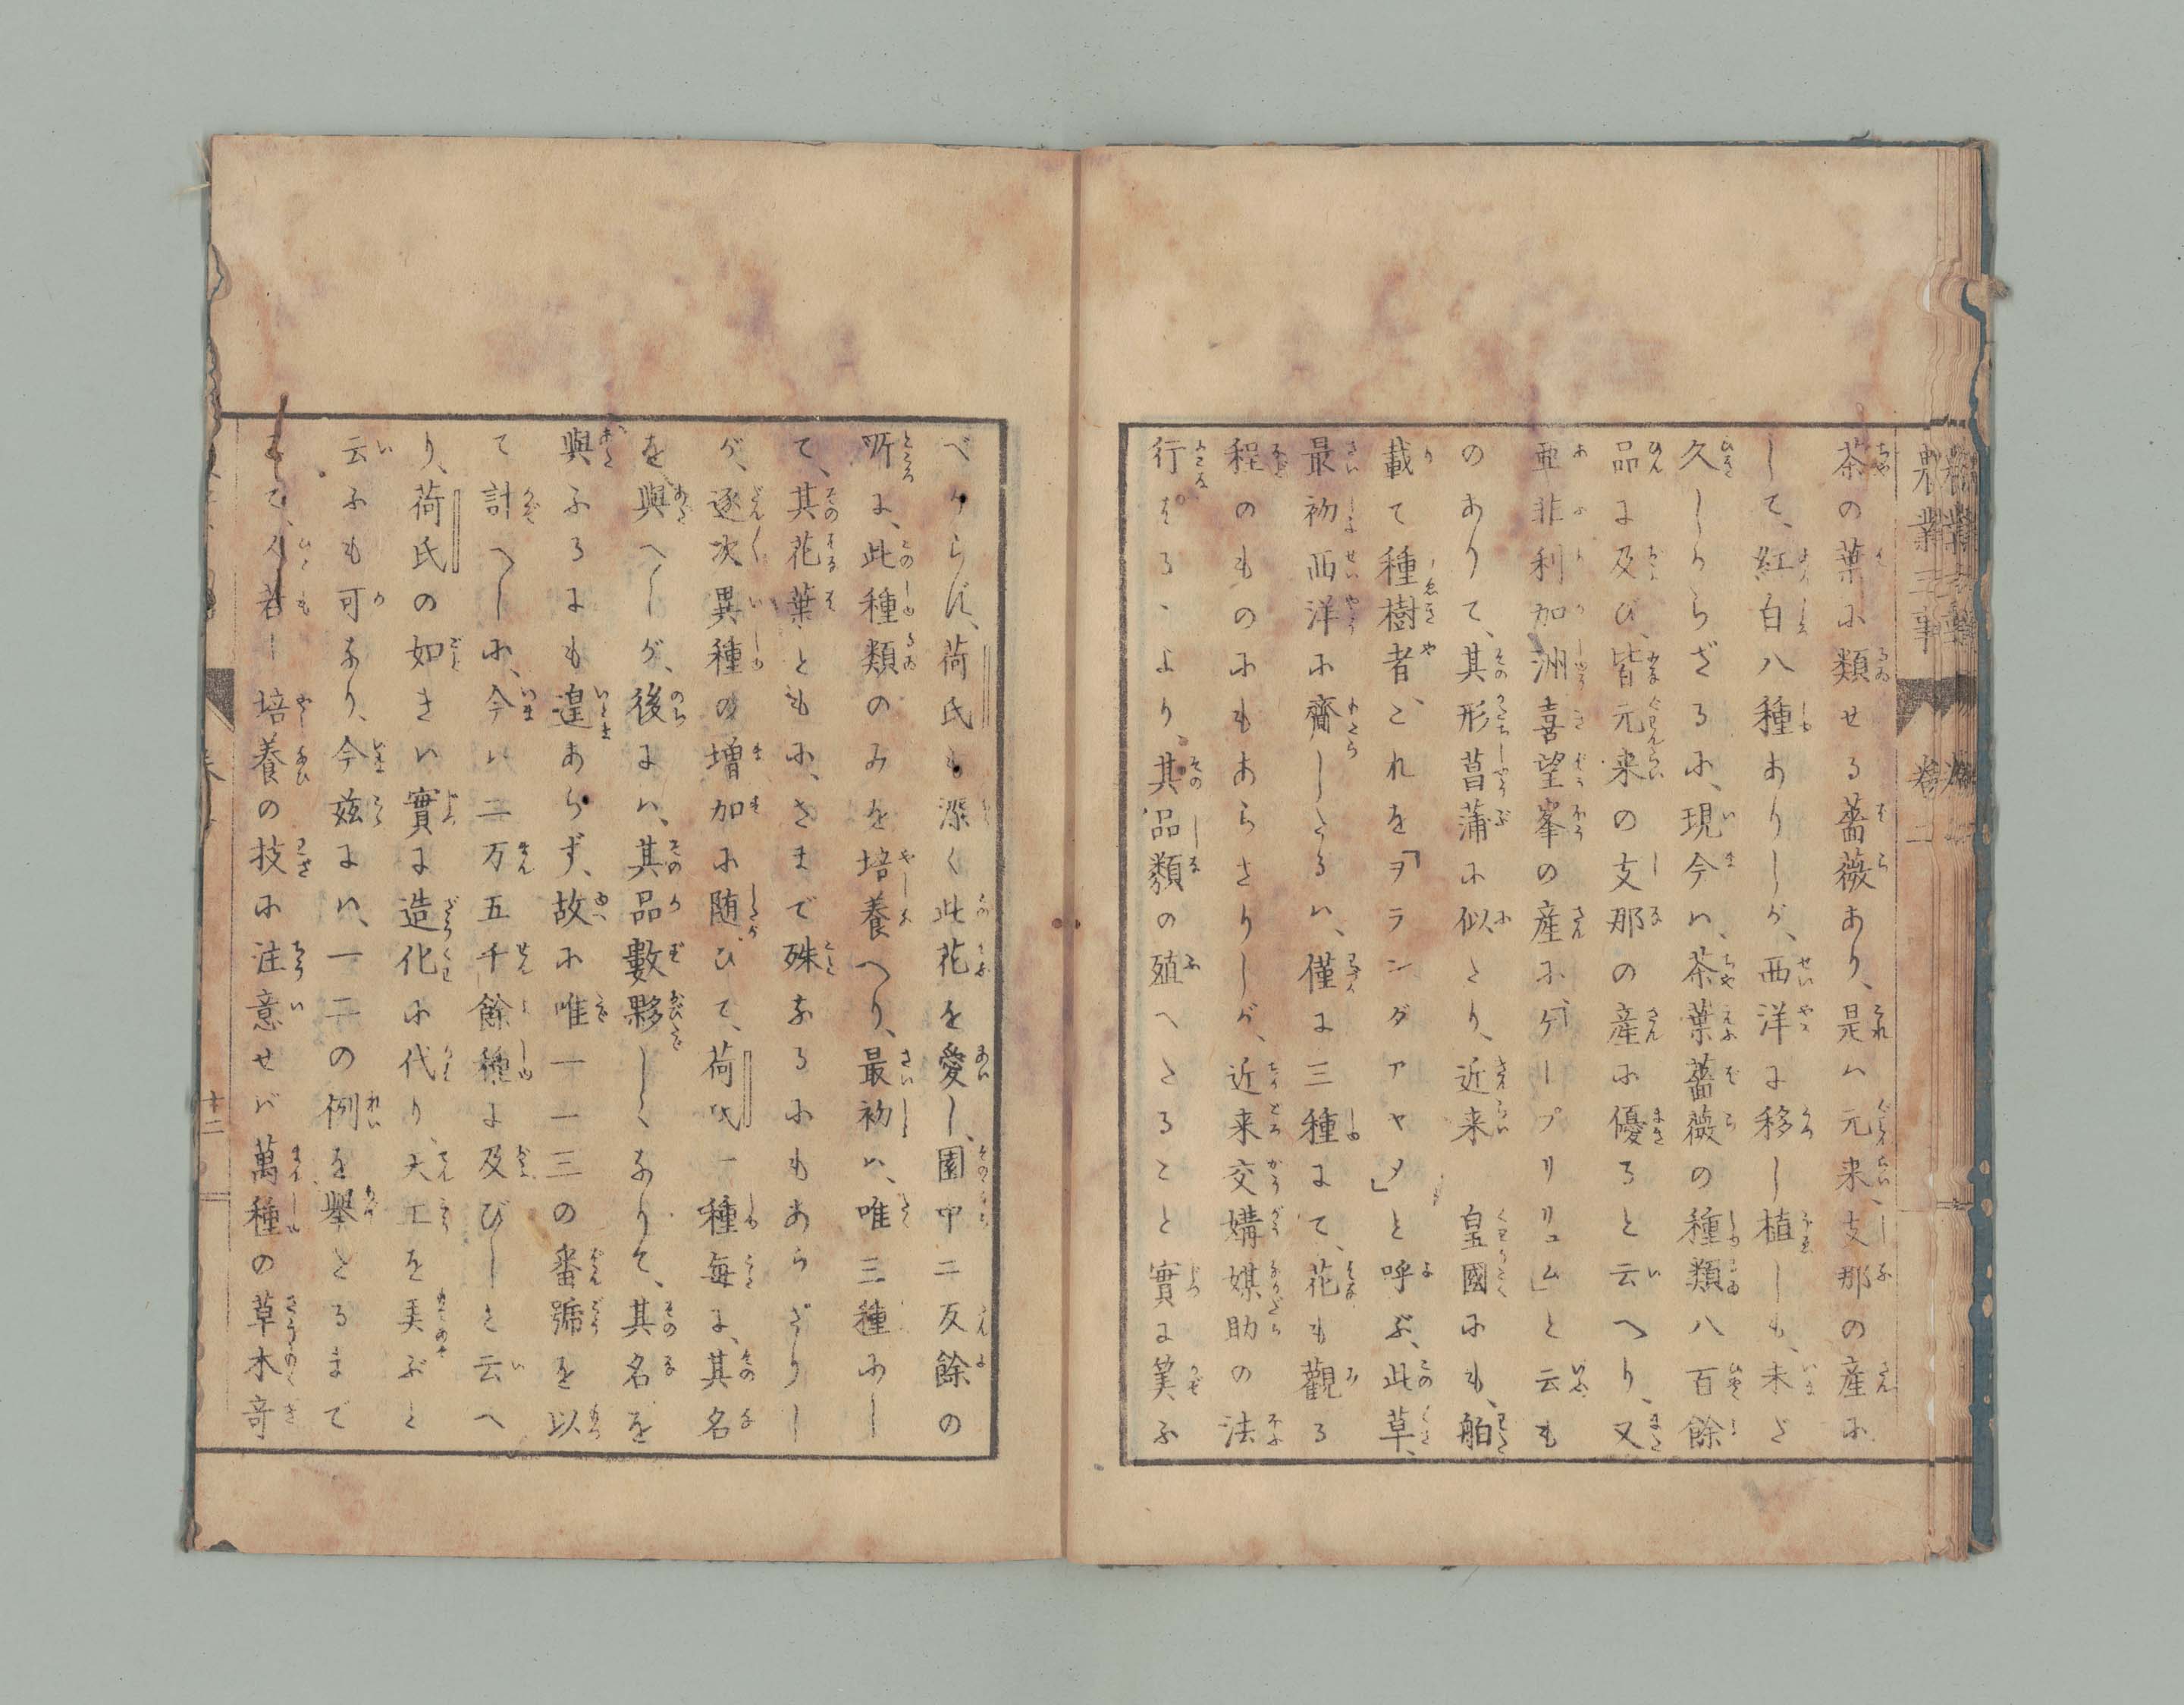 農業三事 卷二
茶の葉に類せる薔薇あり、是ハ元来、支那の産に
して、紅白八種ありしが、西洋に移し植しも、未ざ
久しからざるに、現今ハ、茶葉薔薇の種類八百餘
品に及び、皆元来の支那の産に優ると云へり、又
亜非利加洲喜望峯の産に「ゲープリリュム」と云も
のありて、其形菖蒲に似たり、近来 皇國にも、舶
載て種樹者、これを「ヲランダアヤメ」と呼ぶ、此草、
最初西洋に齎したるハ、僅に三種にて、花も觀る
程のものにもあらさりしが、近来交媾媒助の法
行はるゝより、其品類の殖へたること實に筭ふ
べからず、荷氏も深く此花を愛し、園中二反餘の
所に、此種類のみを培養へり、最初ハ、唯三種にし
て、其花葉ともに、さまで殊なるにもあらざりし
が、逐次異種の増加に随ひて、荷氏一種毎に、其名
を與へしが、後にハ、其品數夥しくなりて、其名を
與ふるにも遑あらず、故に唯一二三の番號を以
て計へしに、今ハ二万五千餘種に及びしと云へ
り、荷氏の如きハ實に造化に代り、天工を美ぶと
云ふも可なり、今玆にハ、一二の例を擧とるまで
にて、人若し培養の技に注意せバ萬種の草木竒
十二